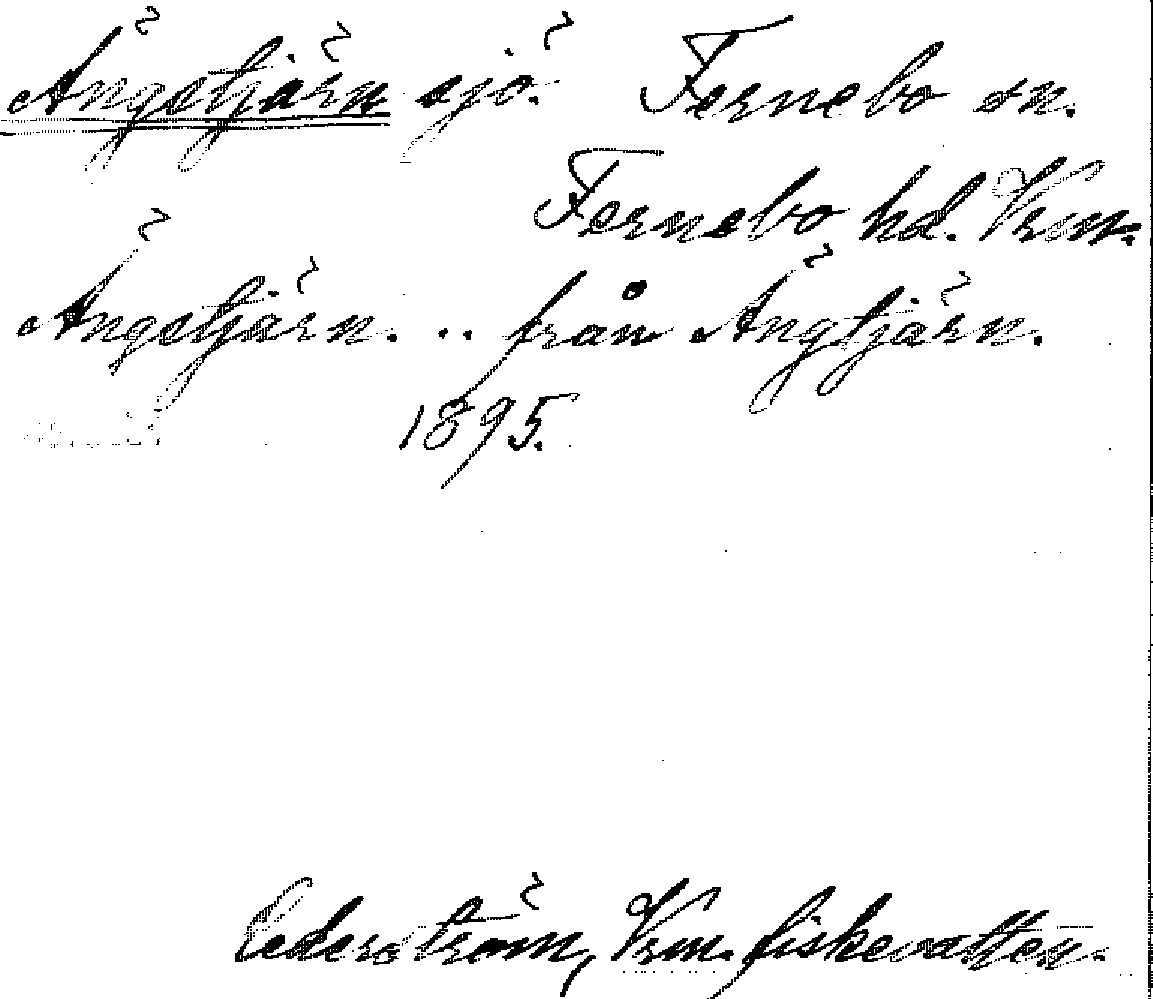 Ängstjärn sjö. Fernebo sn.
Fernebo hd. Vrm.
Ängstjärn. .. från Ängtjärn.
1895.
Cederström, Vrm. fiskevatten.